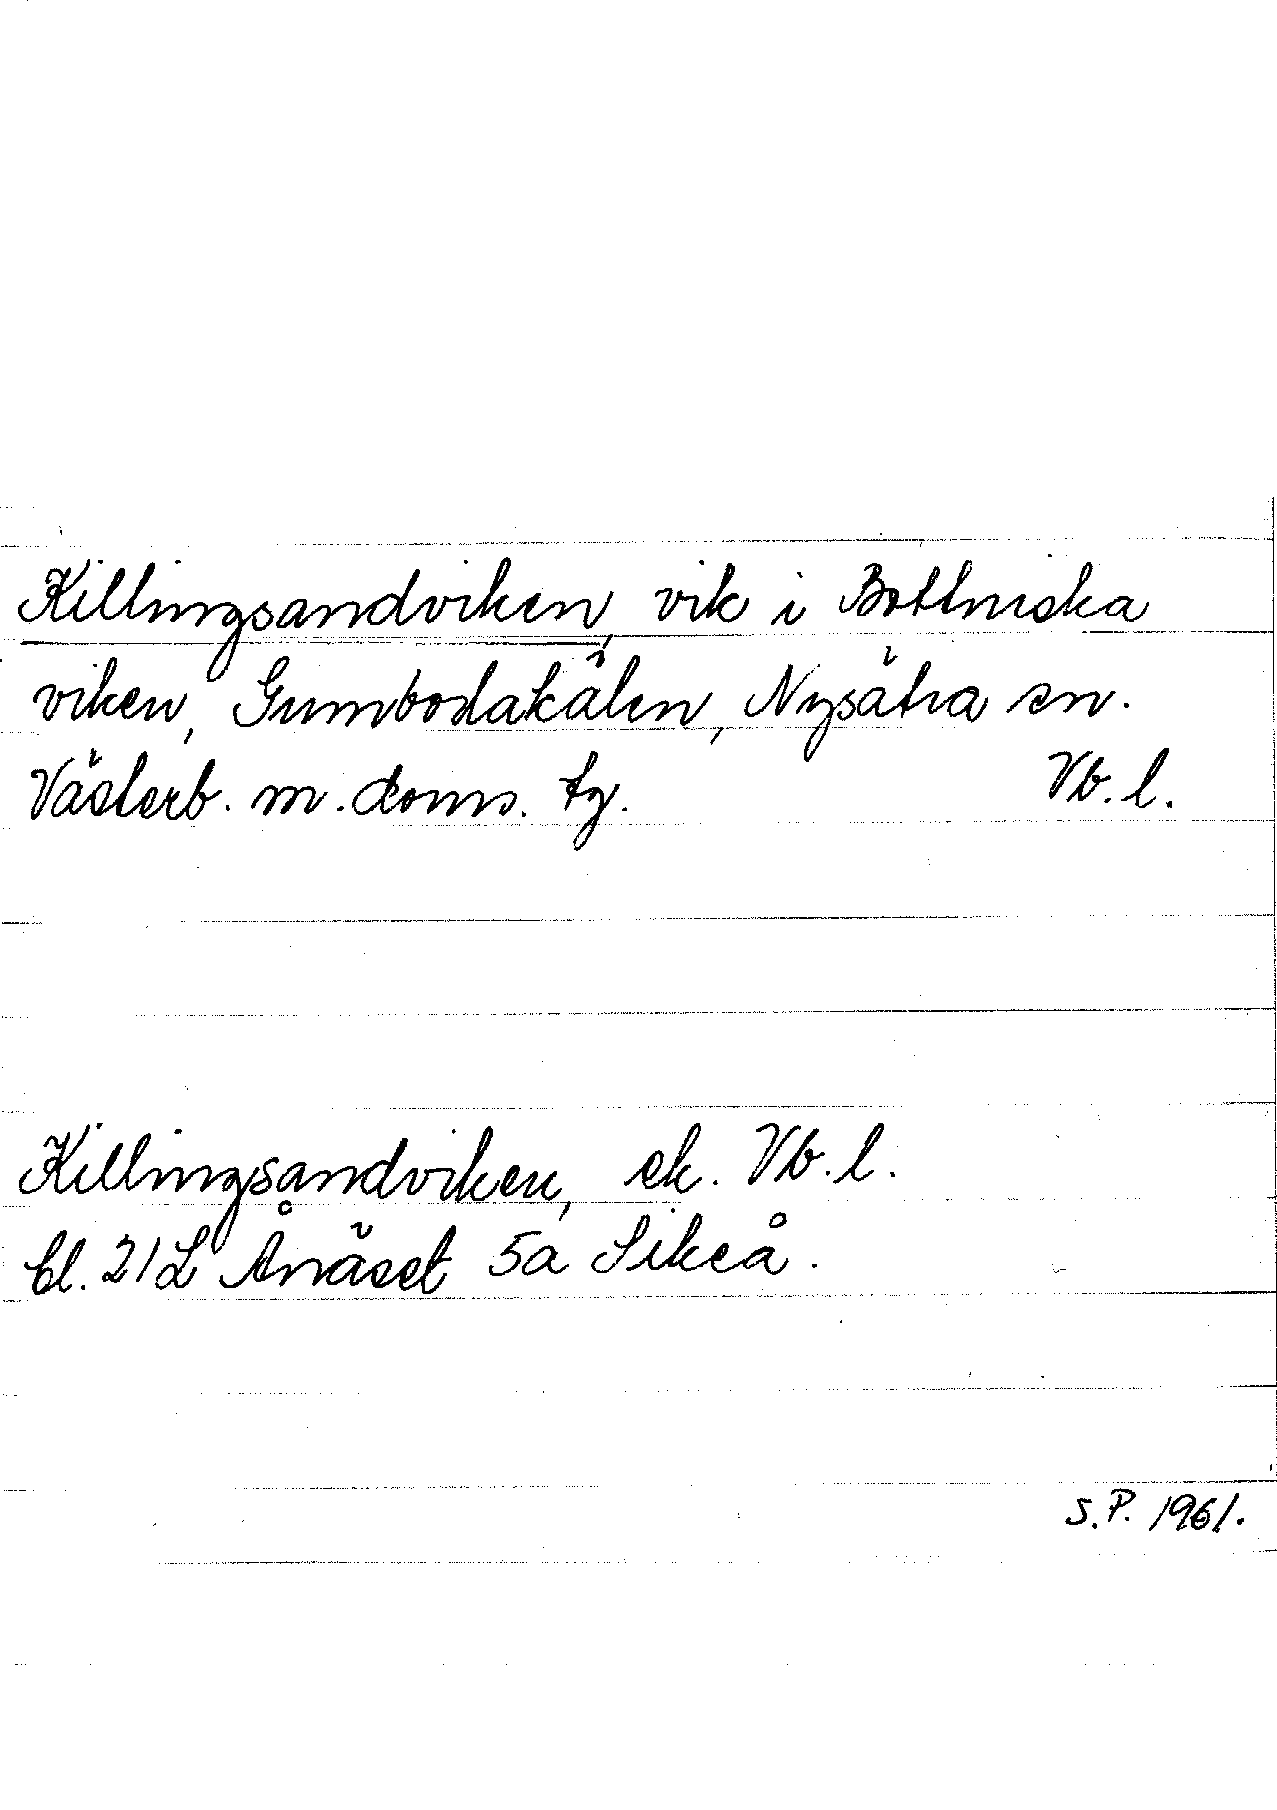 Killingsandviken, vik i Bottniska
viken, Gumbodakälen, Nysätra sn.
Västerb. m. doms. tg. Vb. l.
Killingsandviken, ek. Vb. l.
bl. 21L Ånäset 5a Sikeå.
S.P. 1961.